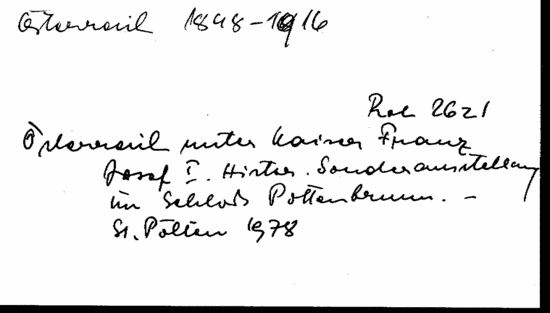 Österreich 1848-1916
Rol 2621
Österreich unter Kaiser Franz
Josef I. Histor. Sonderausstellung
im Schloß Pottenbrunn. –
St. Pölten 1978